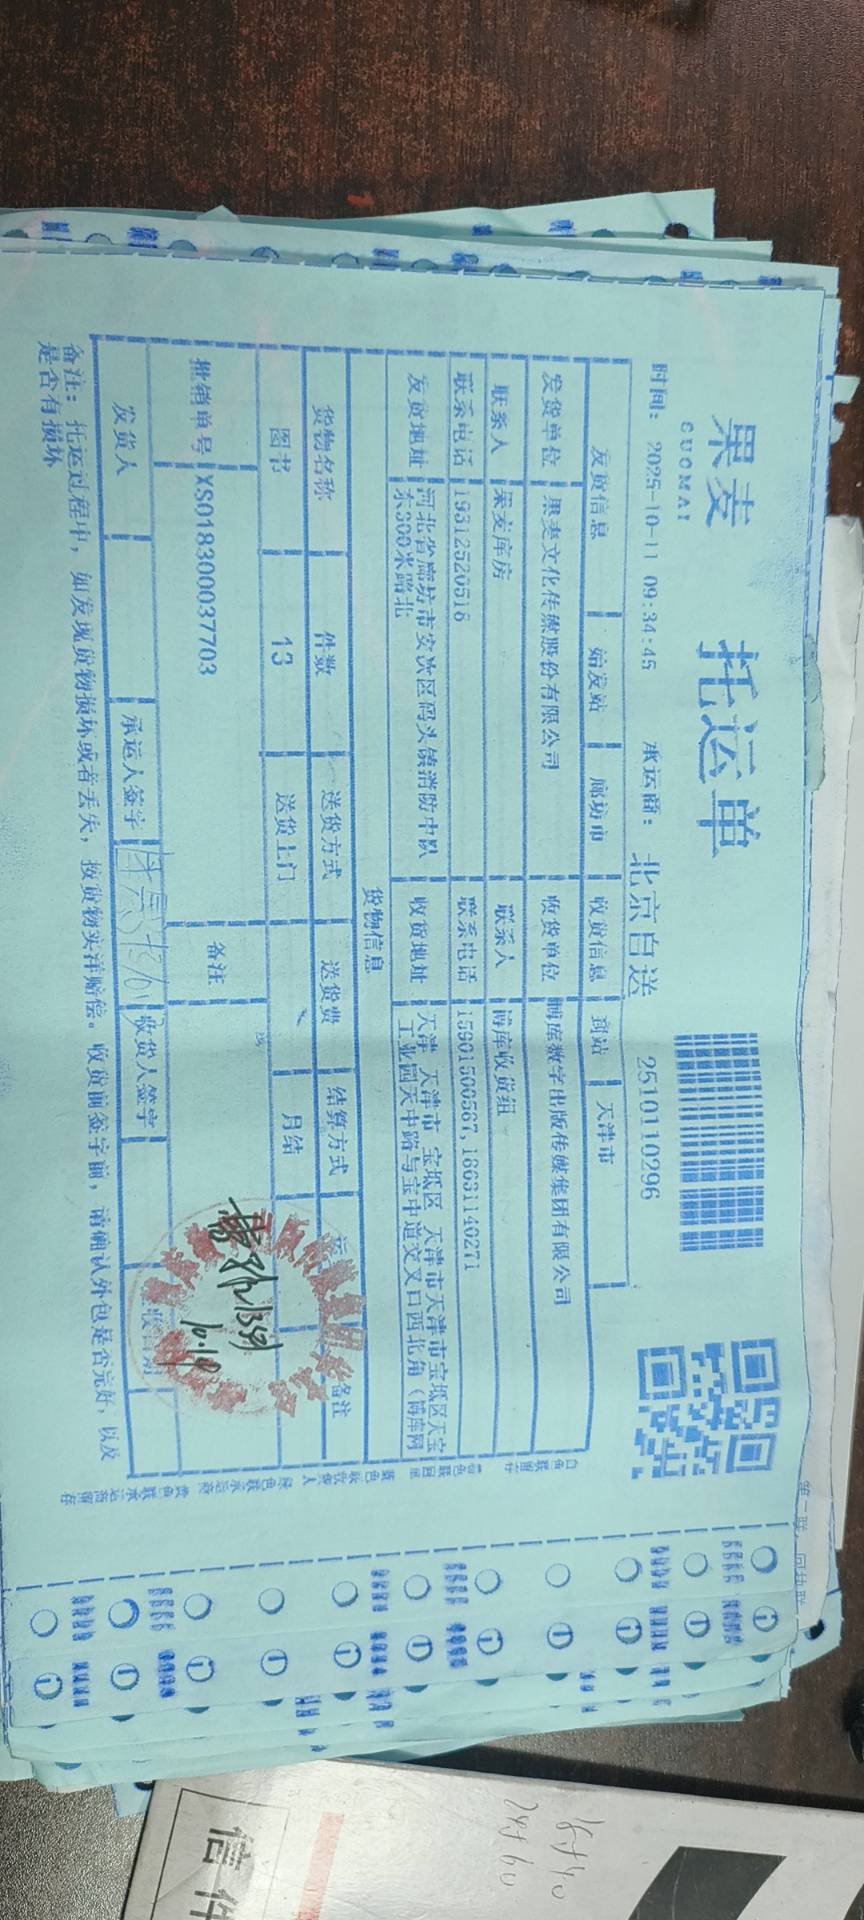 果麦
GUOMAI
托运单
时间: 2025-10-11 09:34:45 承运商: 北京自送 2510110296
发货信息 始发站 廊坊市 收货信息 到站 天津市
发货单位 果麦文化传媒股份有限公司 收货单位 博库数字出版传媒集团有限公司
联系人 果麦库房 联系人 博库收货组
联系电话 19312520516 联系电话 15901500567,16631140271
发货地址 河北省廊坊市安次区码头镇消防中队东500米路北 收货地址 天津 天津市 宝坻区 天津市天津市宝坻区天宝工业园天中路与宝中道交叉口西北角（博库网
货物信息
货物名称 件数 送货方式 送货费 结算方式 运 备注
图书 13 送货上门 月结
批销单号 XS018300037703 备注
发货人 承运人签字 收货人签字 收日期
备注: 托运过程中, 如发现货物损坏或者丢失, 按货物实洋赔偿。收货前签字前, 请确认外包是否完好, 以及
是否有损坏
10.19
信件